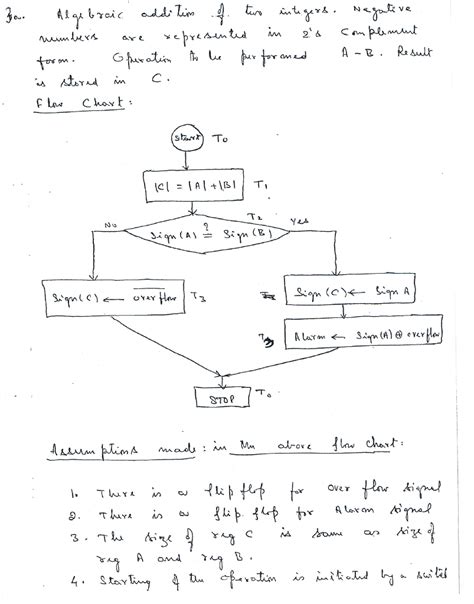 3a. Algebraic addition of two integers. Negative
numbers are represented in 2's Complement
form. Operation to be performed A - B. Result
is stored in C.
Flow Chart:
Start T0
|C| = |A| + |B| T1
T2
No Sign(A) ?= Sign(B) Yes
Sign(C) ← overflow T3
Sign(C) ← Sign A
Alarm ← Sign(A) ⊕ overflow
STOP T0
Assumptions made: in the above flow chart:
1. There is a flip flop for over flow signal
2. There is a flip flop for Alarm signal
3. The size of reg C is same as size of
reg A and reg B.
4. Starting of the operation is initiated by a switch